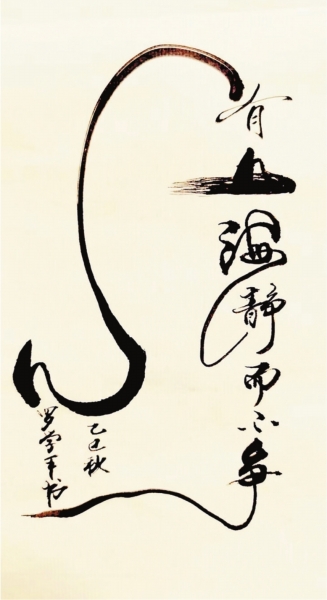 心
有山海静而不争
乙巳秋
罗学平书